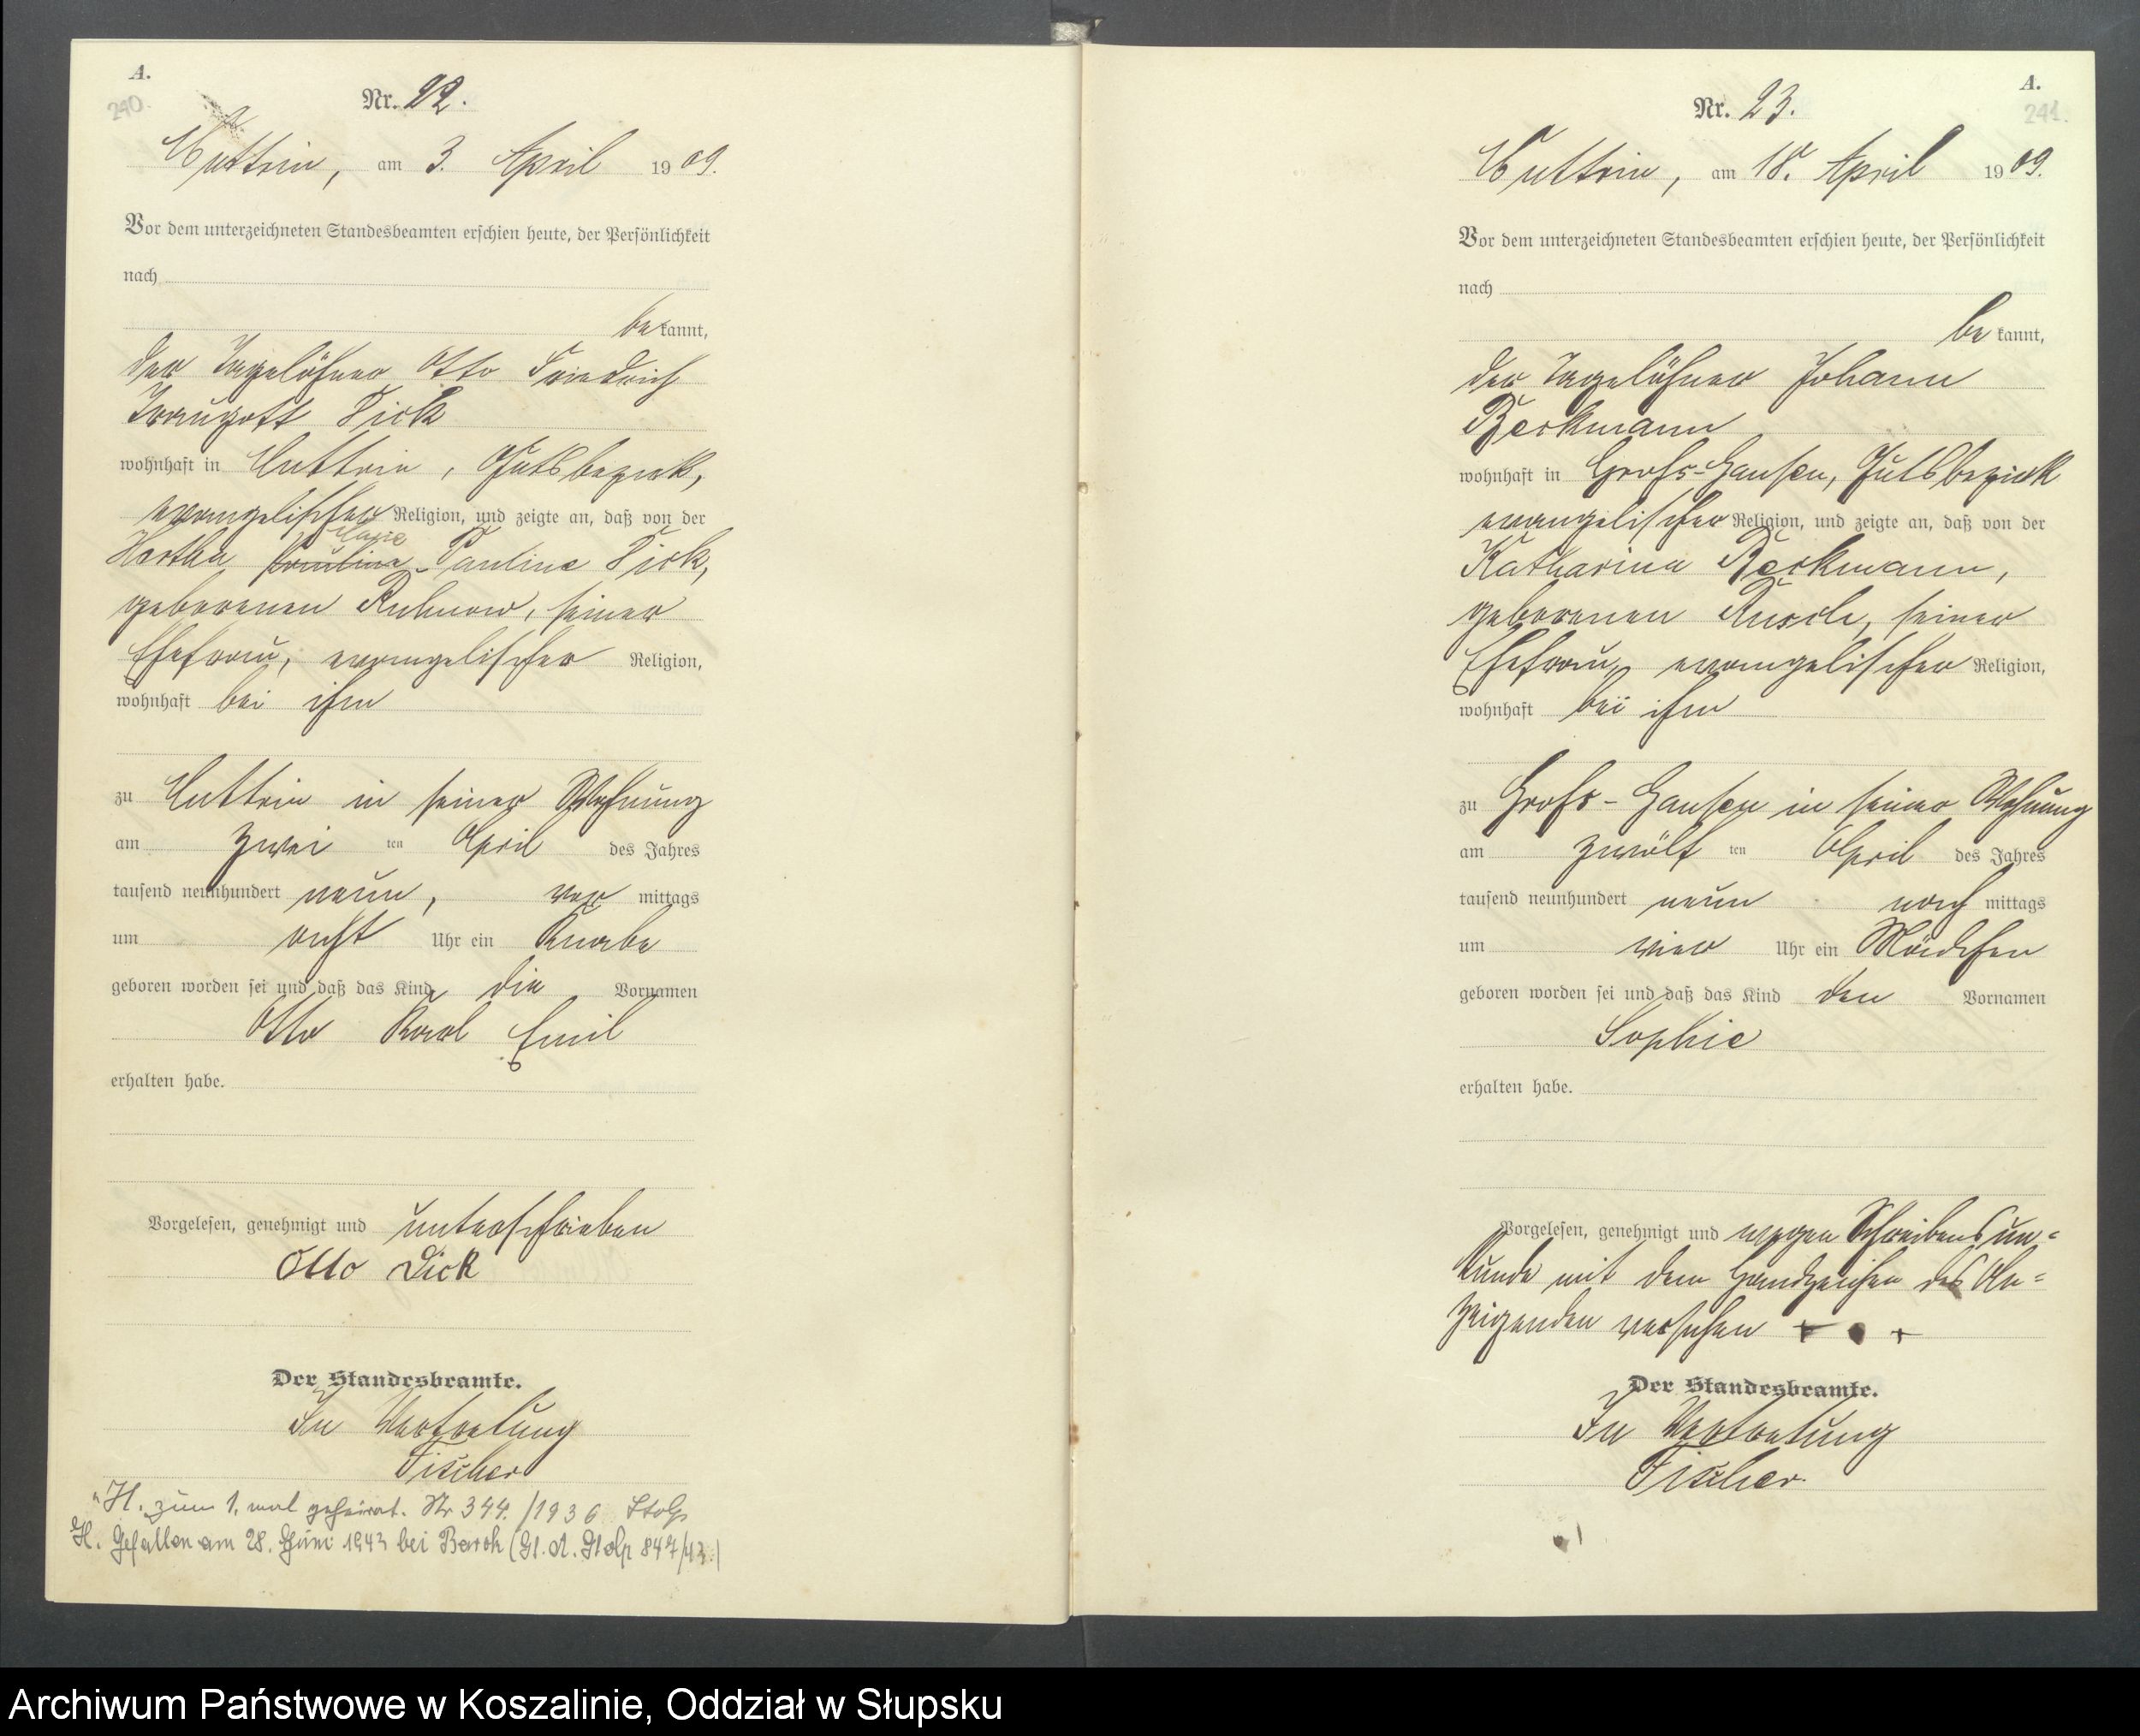 A.
240.
Nr. 22.
Muttrin, am 3. April 1909.
Vor dem unterzeichneten Standesbeamten erschien heute, der Persönlichkeit
nach
bekannt,
der Tagelöhner Otto Friedrich
Traugott Dick
wohnhaft in Muttrin, Gutsbezirk,
evangelischer Religion, und zeigte an, daß von der
Marie
Hertha Pauline Dick,
geborenen Ruhnow, seiner
Ehefrau, evangelischer Religion,
wohnhaft bei ihm
zu Muttrin in seiner Wohnung
am zwei ten April des Jahres
tausend neunhundert neun, vor mittags
um acht Uhr ein Knabe
geboren worden sei und daß das Kind die Vornamen
Otto Karl Emil
erhalten habe.
Vorgelesen, genehmigt und unterschrieben
Otto Dick
Der Standesbeamte.
In Vertretung
Fischer
H. zum 1. mal geheirat. Nr 344./1936 Stolp
H. Gefallen am 28. Juni 1943 bei (St. A. Stolp 847/43)
A.
241.
Nr. 23.
Muttrin, am 18. April 1909.
Vor dem unterzeichneten Standesbeamten erschien heute, der Persönlichkeit
nach
bekannt,
der Tagelöhner Johann
Beckmann
wohnhaft in Groß-Gansen, Gutsbezirk
evangelischer Religion, und zeigte an, daß von der
Katharina Beckmann,
geborenen seiner
Ehefrau, evangelischer Religion,
wohnhaft bei ihm
zu Groß-Gansen in seiner Wohnung
am zwölf ten April des Jahres
tausend neunhundert neun nach mittags
um vier Uhr ein Mädchen
geboren worden sei und daß das Kind den Vornamen
Sophie
erhalten habe.
Vorgelesen, genehmigt und wegen Schreibensun-
kunde mit dem Handzeichen des An-
zeigenden versehen + +
Der Standesbeamte.
In Vertretung
Fischer.
Archiwum Państwowe w Koszalinie, Oddział w Słupsku